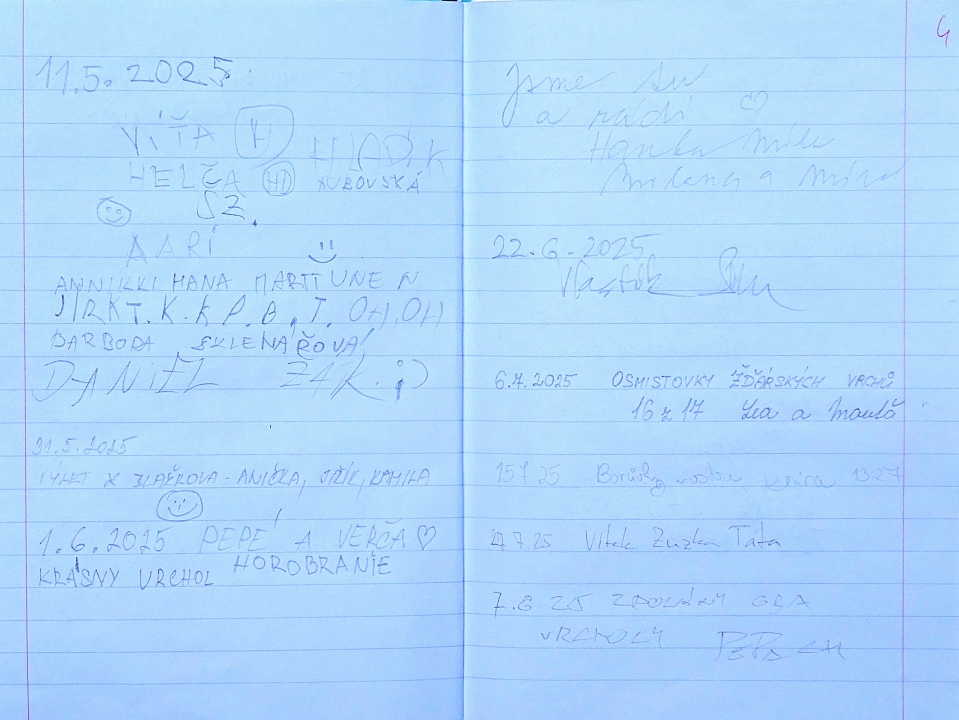 11.5.2025
VÍŤA H HLADÍK
HELČA HD DUBOVSKÁ
SZ.
AARI
ANNIKKI HANA MARTTUNEN
JIRKT.K.K P.B.T. OH,OH
BARBORA SKLENÁŘOVÁ
DANIEL ŽÁK. ;)
31.5.2025
VÝLET Z - ANIČKA, JIŘÍK, KAMILA
1.6.2025 PEPÉ A VERČA ♡
KRÁSNY VRCHOL HOROBRANIE
4
Jsme tu
a rádi ♡
Hanka
Milena a Míra
22.6.2025
Vlastík
6.7.2025 OSMISTOVKY ŽĎÁRSKÝCH VRCHŮ
16 z 17 Lea a
15 7 25 Borůvky rostou 13:27
7.25 Vítek Zuzka Táta
7.8 25 ZDOLÁNY OBA
VRCHOLY